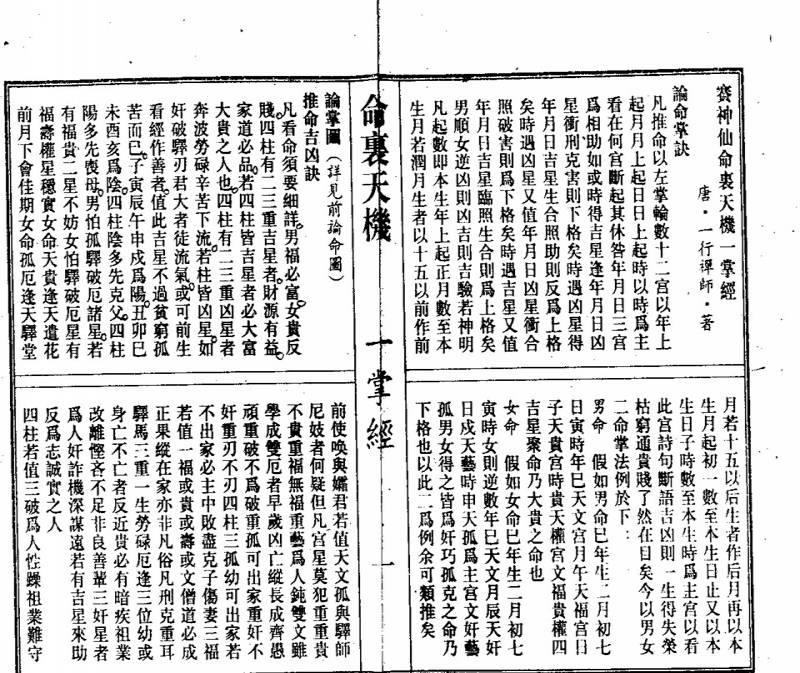 賽神仙命裏天機一掌經
唐·一行禪師·著
論命掌訣
凡推命以左掌輪數十二宮以年上
起月月上起日日上起時以時爲主
看在何宮斷起其休咎年月日三宮
爲相助如或時得吉星逢年月日凶
星衝刑克害則下格矣時遇凶星得
年月日吉星生合照助則反爲上格
矣時遇凶星又值年月日凶星衝合
照破害則爲下格矣時遇吉星又值
年月日吉星臨照生合則爲上格矣
男順女逆凶則凶吉則吉驗若神明
凡起數即本生年上起正月數至本
生月若潤月生者以十五以前作前
月若十五以后生者作后月再以本
生月起初一數至本生日止又以本
生日子時數至本生時爲主宮以看
此宮詩句斷語吉凶則一生得失榮
枯窮通貴賤了然在目矣今以男女
二命掌法例於下：
男命 假如男命巳年生二月初七
日寅時年巳天文宮月午天福宮日
子天貴宮時貴天權宮文福貴權四
吉星聚命乃大貴之命也
女命 假如女命巳年生二月初七
寅時女則逆數年巳天文月辰天奸
日戍天藝時申天孤爲主宮文奸藝
孤男女得之皆爲奸巧孤克之命乃
下格也以此二爲例余可類推矣
命裏天機 一掌經 一
論掌圖（詳見前論命圖）
推命吉凶訣
凡看命須要細詳。男福必富。女貴反
賤。四柱有二三重吉星者。財源有益。
家道必品。若四柱皆吉星者必大富
大貴之人也。四柱有二三重凶星者
奔波勞碌辛苦下流。若柱皆凶星。如
奸破驛刃君大者徒流氣。或可前生
看經作善者。值此吉星不過貧窮孤
苦而已。子寅辰午申戍爲陽。丑卯巳
未酉亥爲陰。四柱陰多先克父。四柱
陽多先喪母。男怕孤驛破厄諸星。若
有福貴二星不妨女怕驛破厄星有
福壽權星穩實女命天貴逢天遺花
前月下會佳期女命孤厄逢天驛堂
前使喚與孀君若值天文孤與驛師
尼妓者何疑但凡宮星莫犯重重貴
不貴重福無福重藝爲人鈍雙文雖
學成雙厄者早歲凶亡縱長成齊愚
頑重破不爲破重孤可出家重奸不
奸重刃不刃四柱三孤幼可出家若
不出家必主中敗盡克子傷妻三福
若值一福或貴或壽或文僧道必成
正果縱在家亦非凡俗凡刑克重耳
驛馬三重一生勞碌厄逢三位幼或
身亡不亡者反近貴必有暗疾祖業
改離慳吝不足非良善輩三奸星者
爲人奸詐機深謀遠若有吉星來助
反爲志誠實之人
四柱若值三破爲人性躁祖業難守